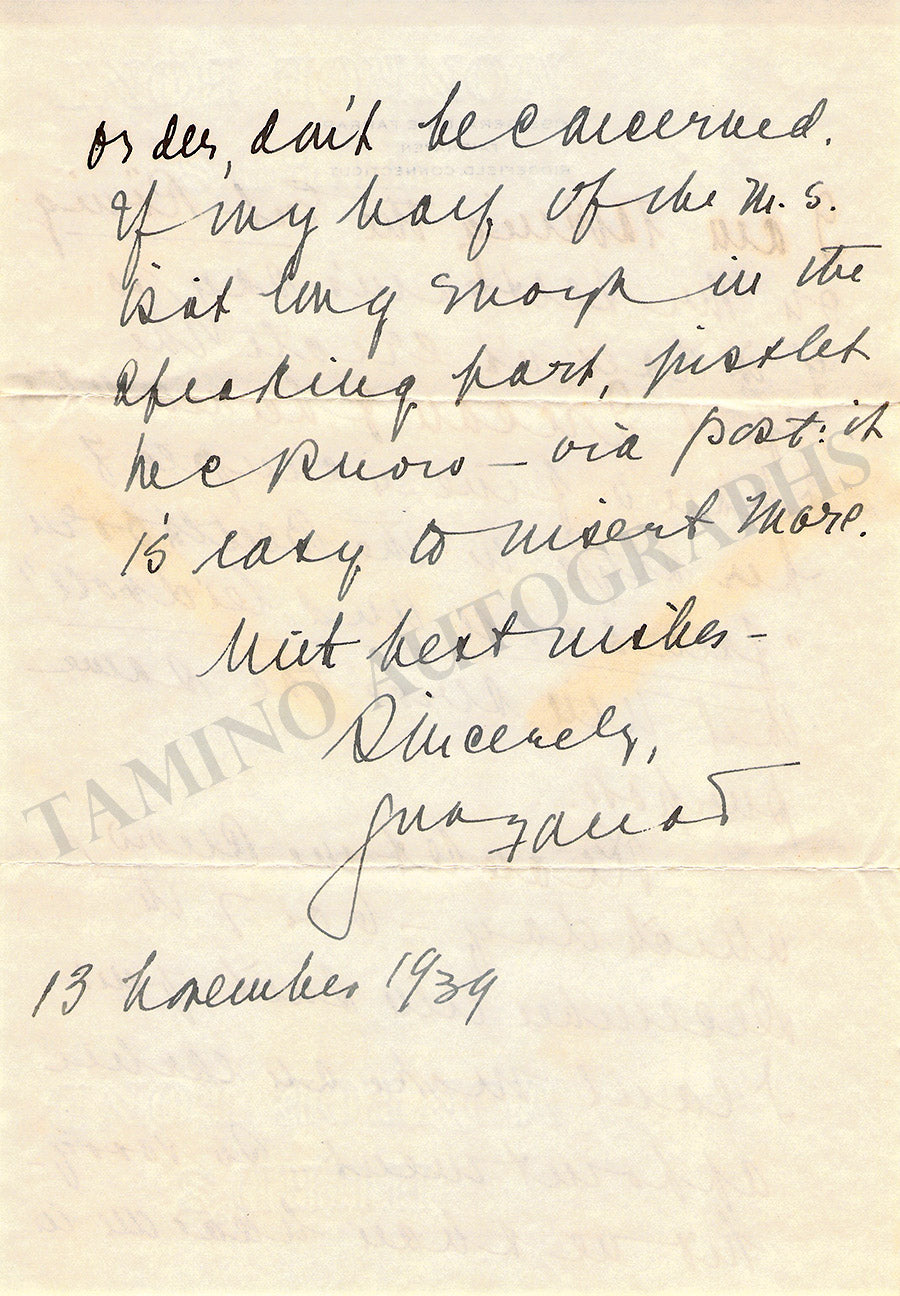 order, don't be concerned.
If my half of the M.S.
isn't long enough in the
speaking part, just let
me know – via post: it
is easy to insert more.
With best wishes –
Sincerely,
13 November 1939
TAMINO AUTOGRAPHS